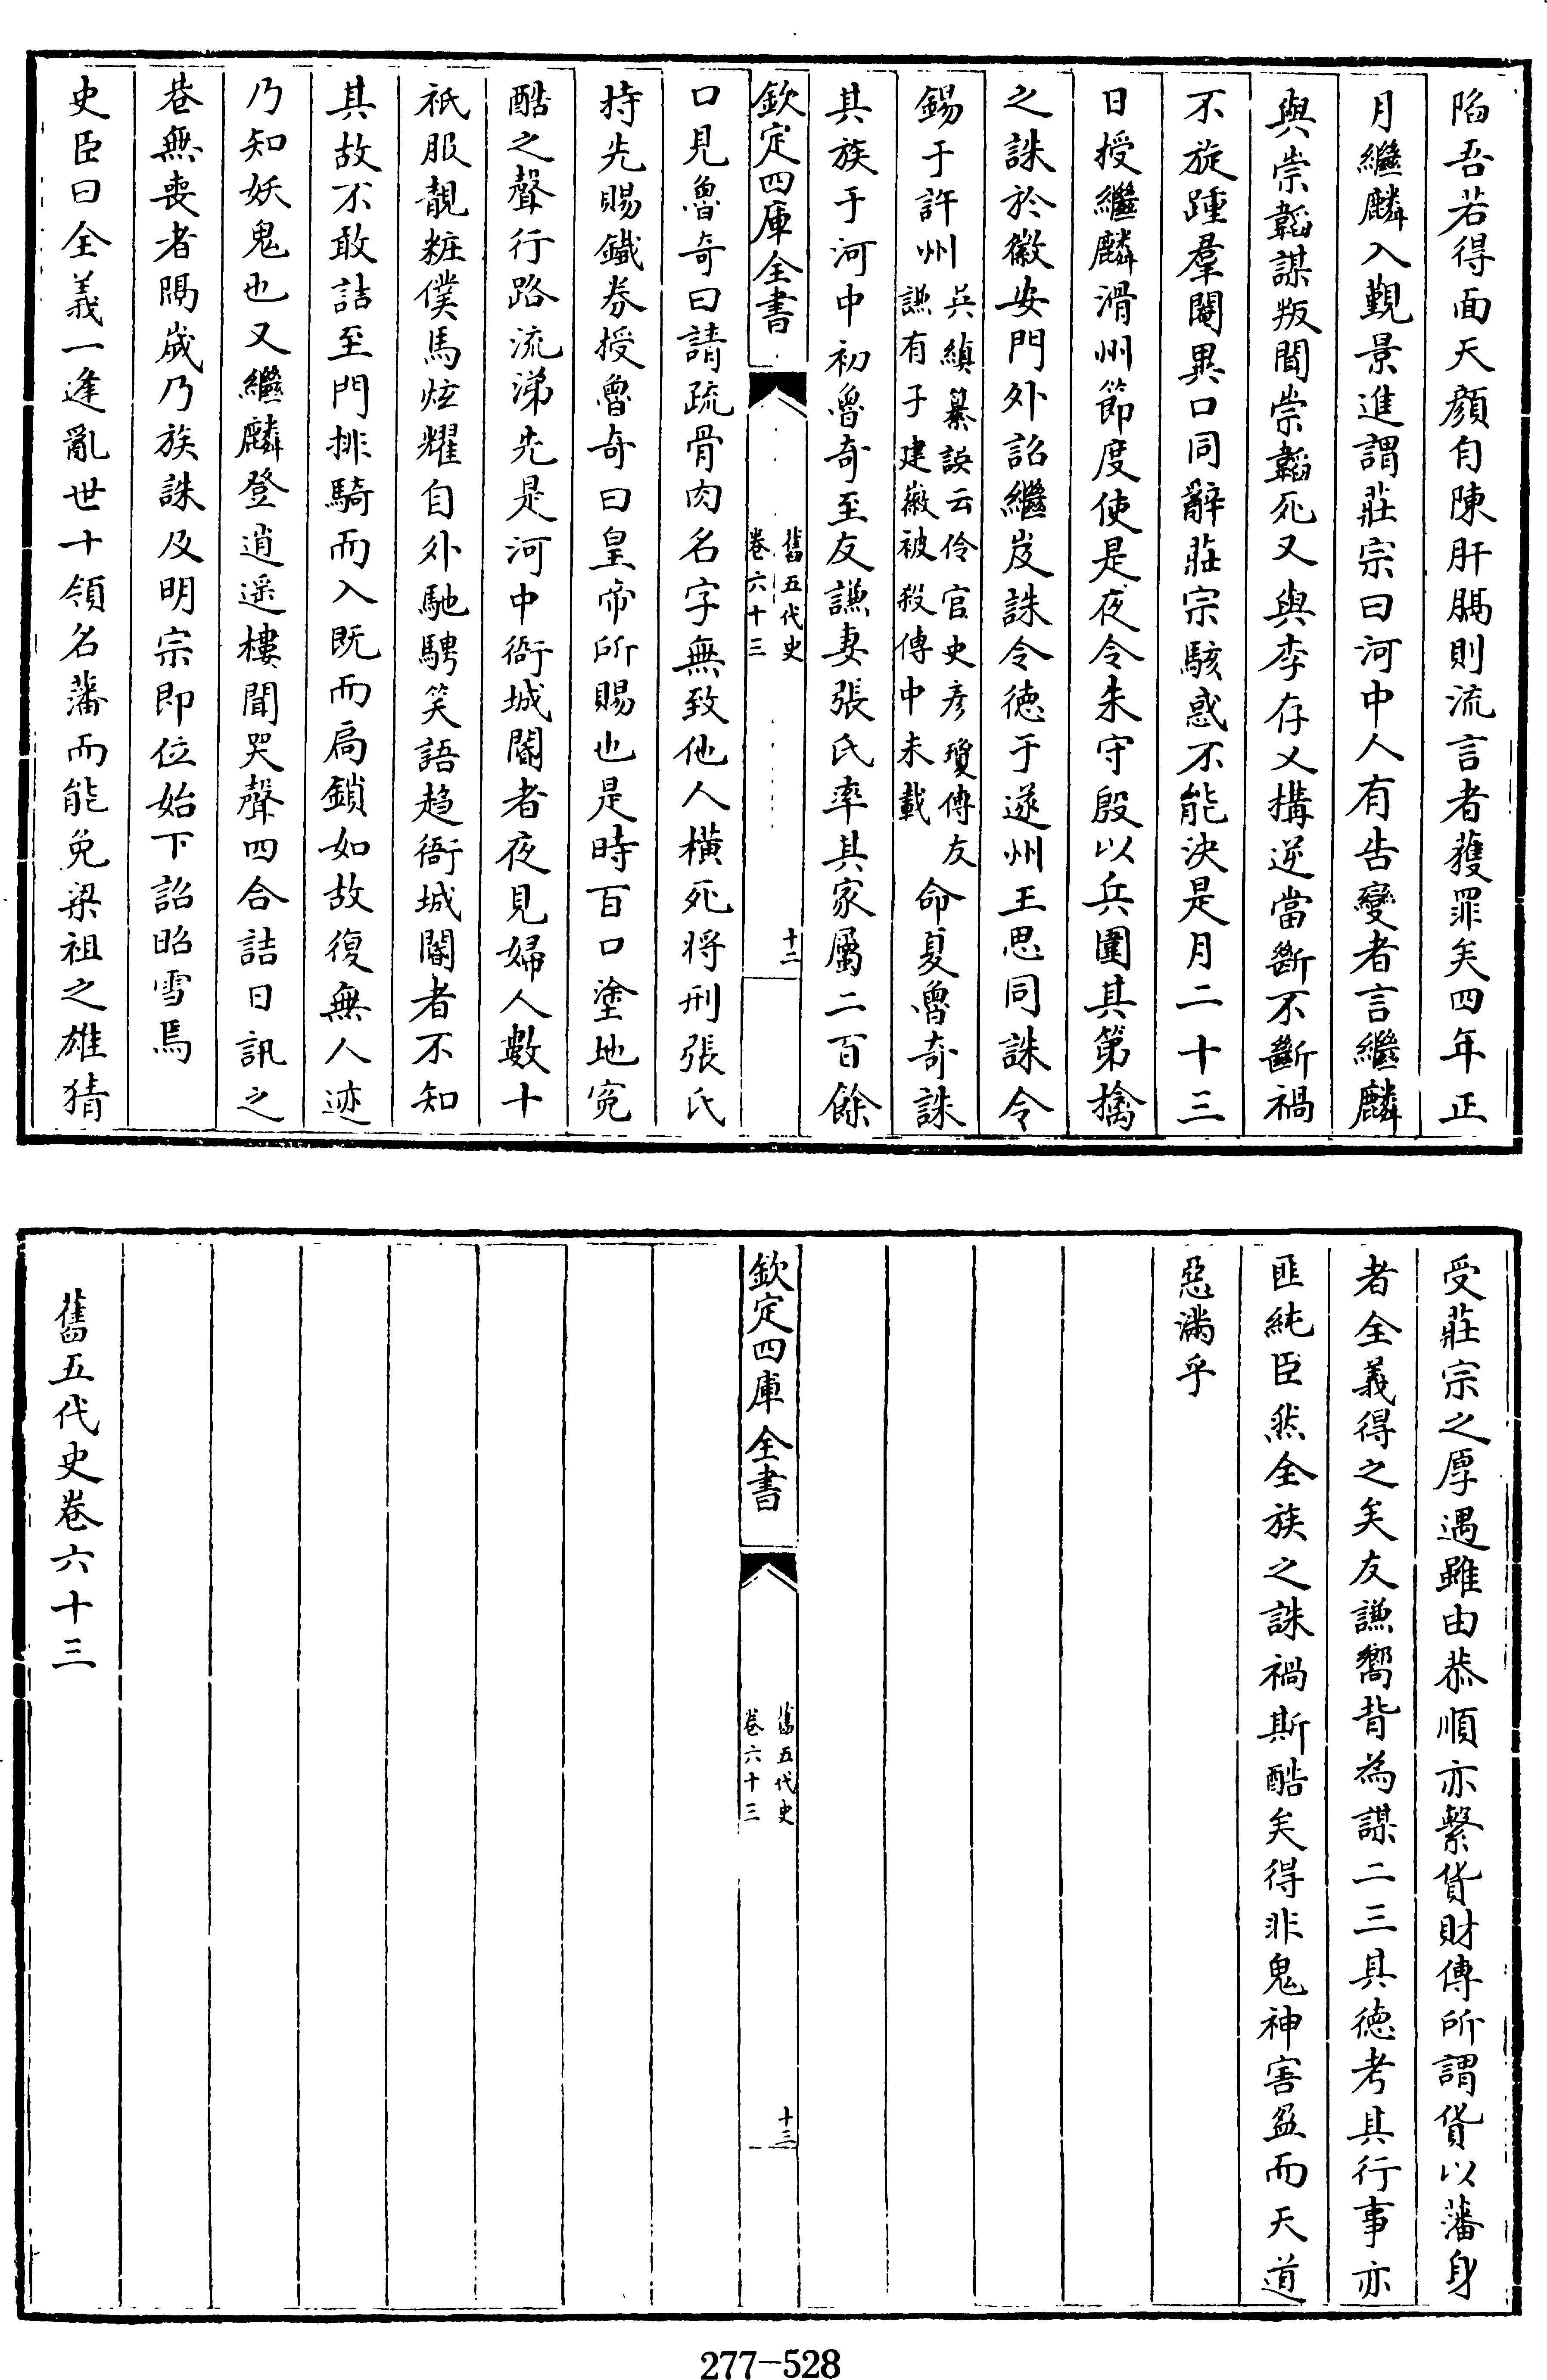 陷吾若得面天顏自陳肝膈則流言者獲罪矣四年正
月繼麟入覲景進謂莊宗曰河中人有告變者言繼麟
與崇韜謀叛聞崇韜死又與李存乂搆逆當斷不斷禍
不旋踵羣閹異口同辭莊宗駭惑不能決是月二十三
日授繼麟滑州節度使是夜令朱守殷以兵圍其第擒
之誅於徽安門外詔繼岌誅令徳于遂州王思同誅令
錫于許州兵繽纂誤云伶官史彥瓊傳友
謙有子建徽被殺傳中未載命夏魯奇誅
其族于河中初魯奇至友謙妻張氏率其家屬二百餘
欽定四庫全書
舊五代史
卷六十三
十二
口見魯奇曰請疏骨肉名字無致他人橫死將刑張氏
持先賜鐵券授魯奇曰皇帝所賜也是時百口塗地寃
酷之聲行路流涕先是河中衙城閽者夜見婦人數十
袨服靚粧僕馬炫耀自外馳騁笑語趨衙城閽者不知
其故不敢詰至門排騎而入既而扃鎖如故復無人迹
乃知妖鬼也又繼麟登逍遥樓聞哭聲四合詰日訊之
巷無喪者隔歲乃族誅及明宗即位始下詔昭雪焉
史臣曰全義一逢亂世十領名藩而能免梁祖之雄猜
受莊宗之厚遇雖由恭順亦繫貨財傳所謂貨以藩身
者全義得之矣友謙嚮背為謀二三其徳考其行事亦
匪純臣然全族之誅禍斯酷矣得非鬼神害盈而天道
惡滿乎
欽定四庫全書
舊五代史
卷六十三
十三
舊五代史卷六十三
277-528